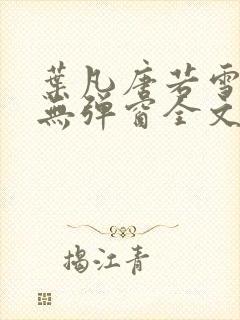 葉凡唐若雪
無彈窗全文
揭江青